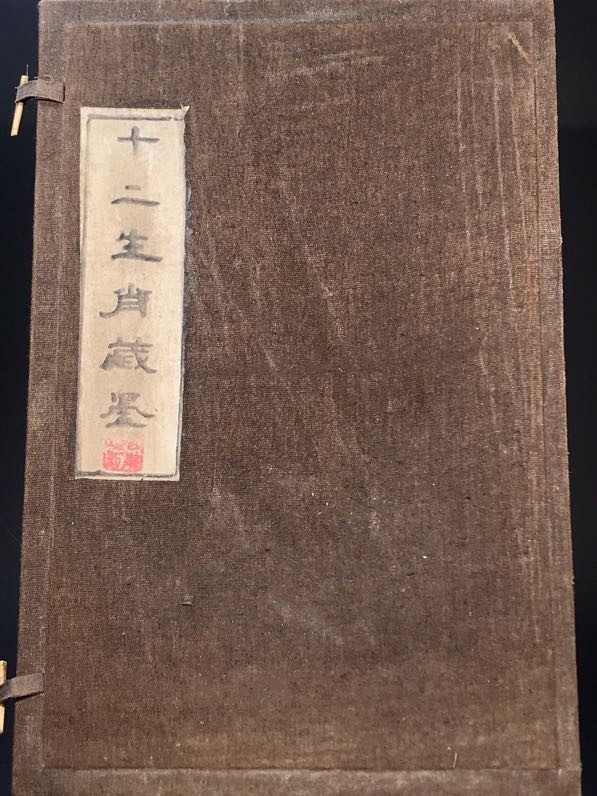 十二生肖藏墨